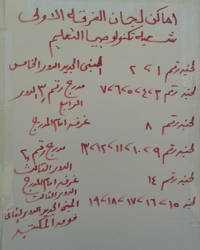 اماكن لجان الفرقه الاولى
شعبه تكنولوجيا التعليم
لجنه رقم ١، ٢ المبنى الجديد الدور الخامس
لجنه رقم ٣، ٤، ٥، ٦، ٧ مدرج رقم ٣ الدور
الرابع
لجنه رقم ٨ غرفه امام المدرج
لجنه رقم ٩، ١٠، ١١، ١٢، ١٣ مدرج رقم ٢
الدور الثالث
لجنه رقم ١٤ غرفه امام المدرج
الدور الثالث
لجنه ١٥، ١٦، ١٧، ١٨، ١٩ المبنى الجديد الدور الثانى
فوق المكتبه